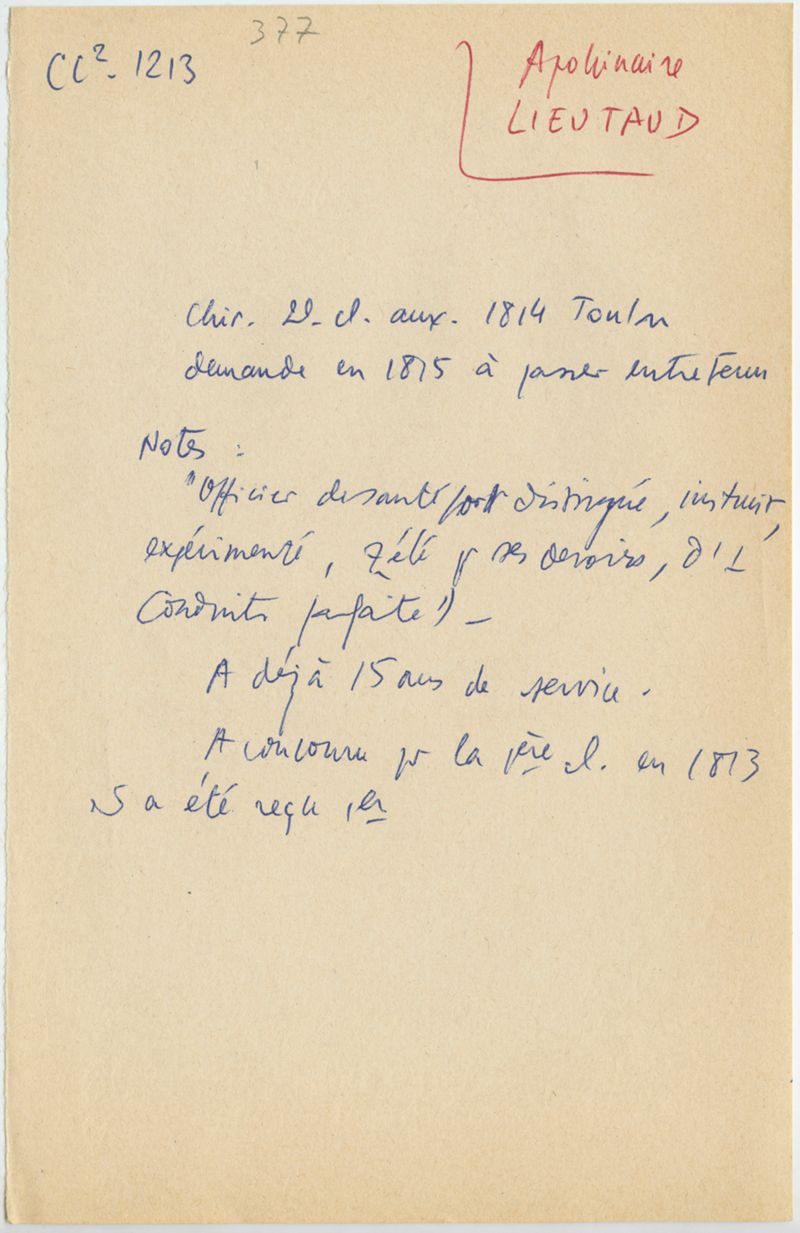 377
CC². 1213
Apollinaire
LIEUTAUD
Chir. 2d. cl. aux. 1814 Toulon
demande en 1815 à passer entretenu
Notes :
"Officier de santé fort distingué, instruit,
expérimenté, zélé pr ses devoirs, d'1
Conduite parfaite" -
A déjà 15 ans de service.
A concouru pr la 1ère cl. en 1813
a été reçu 1er